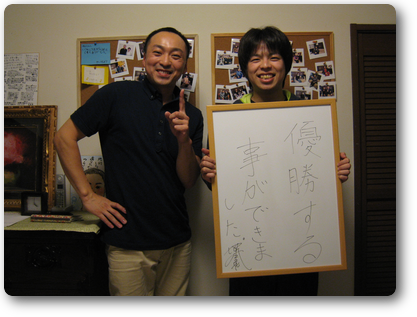 優勝する
事ができま
した。